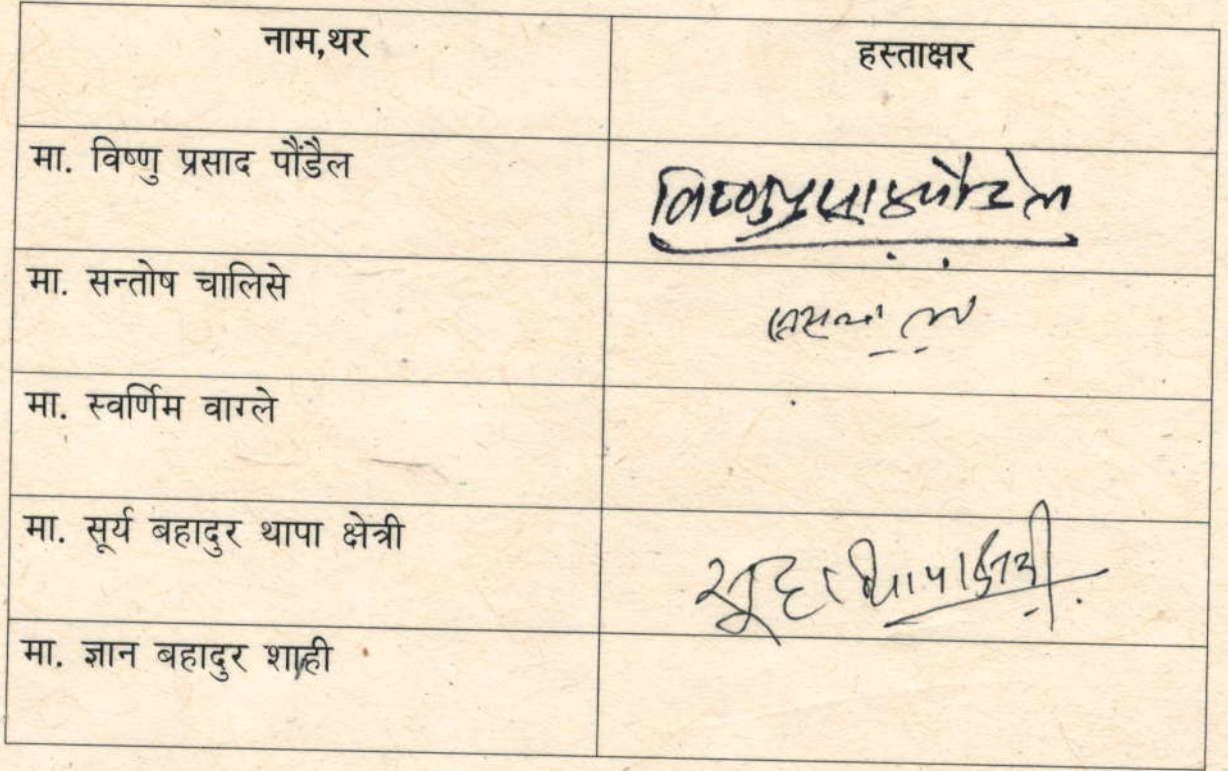 नाम,थर हस्ताक्षर
मा. विष्णु प्रसाद पौडैल विष्णुप्रसाद पौडेल
मा. सन्तोष चालिसे
मा. स्वर्णिम वाग्ले
मा. सूर्य बहादुर थापा क्षेत्री
मा. ज्ञान बहादुर शाही